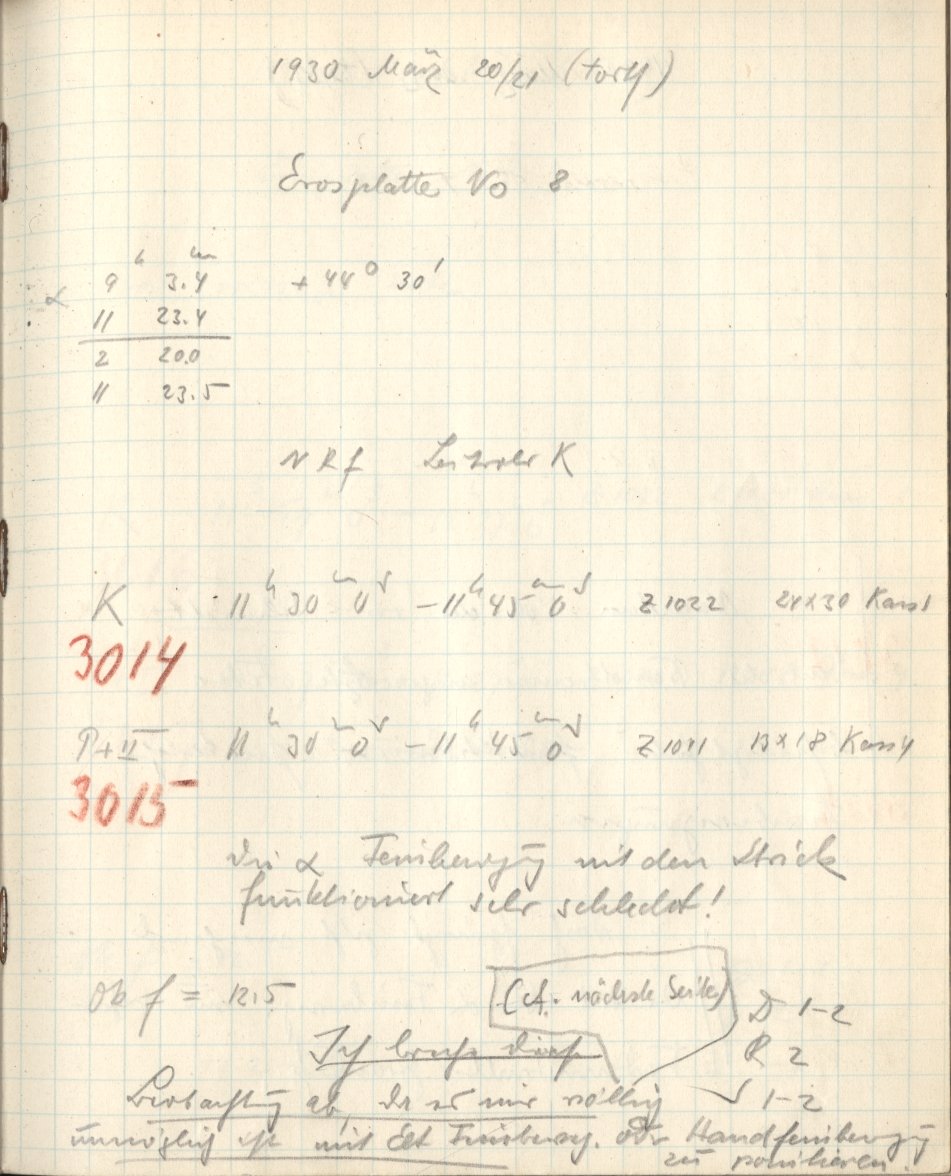 1930 März 20/21 (Torff)
Erosplatte No 8
h m
α 9 3.4 + 44° 30'
11 23.4
2 20.0
11 23.5
N R f Leitrohr K
K 11h 30m 0s – 11h 45m 0s Z 1022 24x30 Kass 1
3014
P+II 11h 30m 0s – 11h 45m 0s Z 1011 13x18 Kass 4
3015
Die α Feinbewegung mit dem Strick
funktioniert sehr schlecht!
Ob f = 12.5 (cf. nächste Seite) D 1–2
Ich breche diese R 2
Beobachtung ab, da es mir völlig 1–2
unmöglich ist mit Feinbeweg. oder Handfeinbewegung
zu pointieren